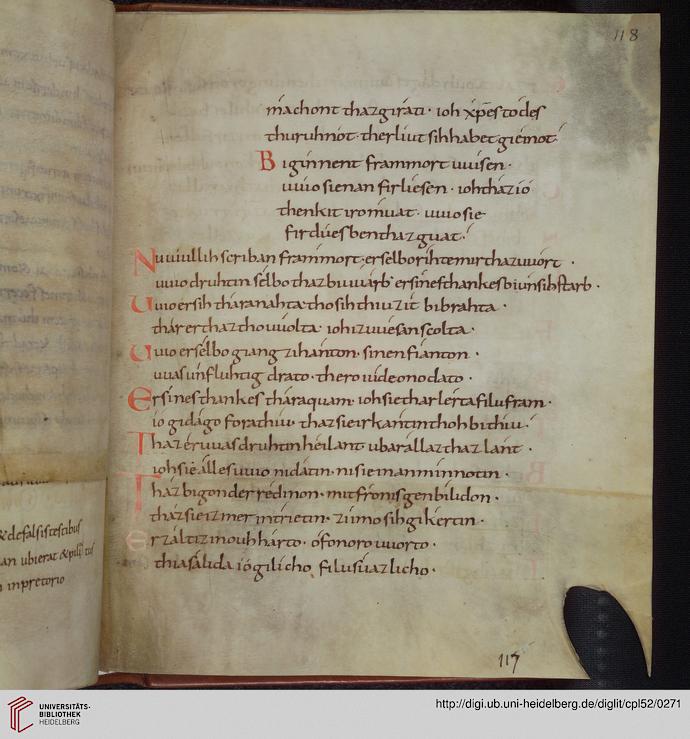 118
máchont thaz girati · ioh xp̃es todes
thuruh nót · ther liut sih habet gieinot ·
Biginnent frammort uuisen ·
uuio sie nan firliesen · ioh thaz ió
thenkit iro múat · uuio sie
firdúes ben thaz guat ·
Nu uuill ih scriban frammort · er selbo ríhte mir thaz uuórt ·
uuio druhtin selbo thaz biuuárb · er sines thankes bi unsih starb ·
Uuio er sih thára nahta · tho sih thiu zít bibrahta ·
thár er thaz tho uuolta · ioh iz uuesan scolta ·
Uuio er sélbo giang zi hánton · sinen fíanton ·
uuas únfluhtig drato · thero uideonodato ·
Er sines thankes thára quam · ioh sie thar lérta filu fram ·
io gidágo forathiu · thaz sie irkántin thoh bi thiu ·
Thaz ér uuas druhtin héilant · ubar állaz thaz lánt ·
ioh sie álles uuio ni dátin · ni sie inan minnotin ·
Tház bigonder rédinon · mit frónisgen bílidon ·
tház sie iz mer intríetin · zi imo síh gikertin ·
Er zált iz in ouh hárto · ófonoro uuorto ·
thia sálida ió gilicho · filu suázlicho ·
117
& de falsis testibus
an ubi erat & pil
in pretorio
UNIVERSITÄTS-
BIBLIOTHEK
HEIDELBERG
http://digi.ub.uni-heidelberg.de/diglit/cpl52/0271